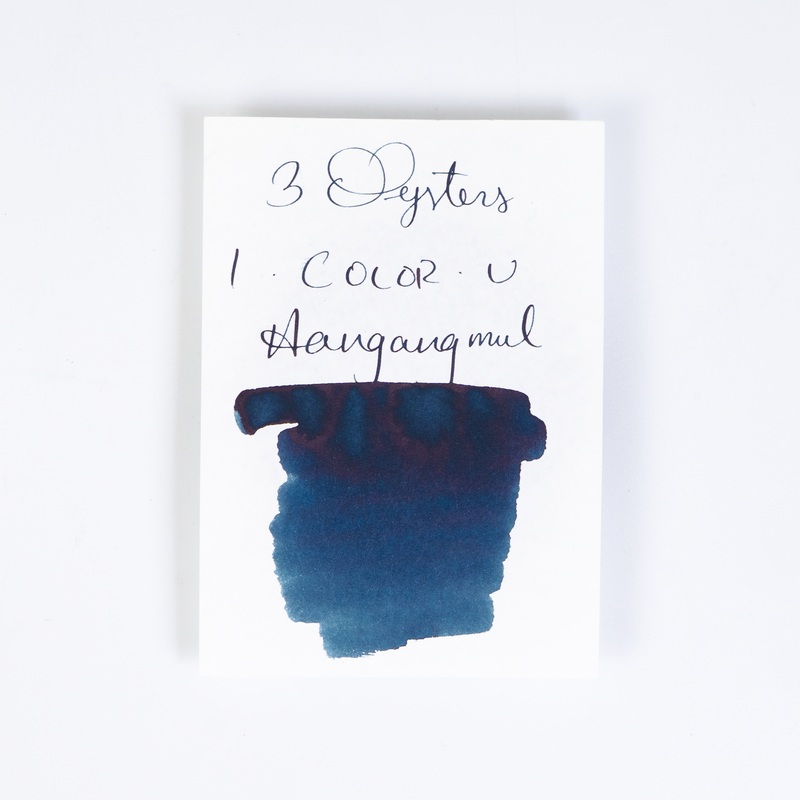 3 Oysters
I · COLOR · U
Hangangmul